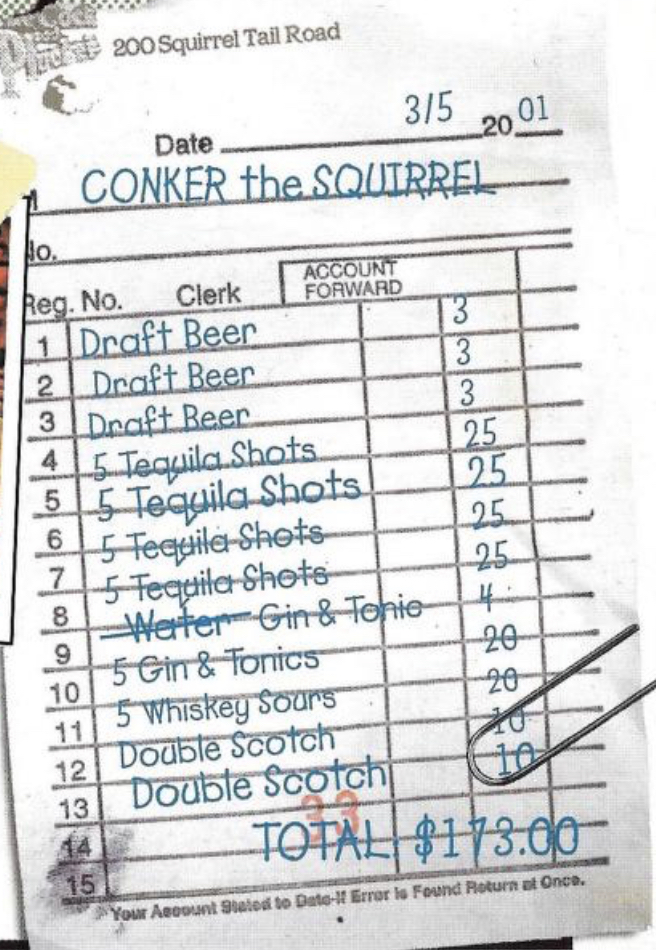 200 Squirrel Tail Road
Date 3/5 20 01
CONKER the SQUIRREL
No.
Reg. No. Clerk ACCOUNT FORWARD
1 Draft Beer 3
2 Draft Beer 3
3 Draft Beer 3
4 5 Tequila Shots 25
5 5 Tequila Shots 25
6 5 Tequila Shots 25
7 5 Tequila Shots 25
8 Water Gin & Tonic 4
9 5 Gin & Tonics 20
10 5 Whiskey Sours 20
11 Double Scotch 10
12 Double Scotch 10
13
33
14 TOTAL: $173.00
15
Your Account Stated to Date-If Error is Found Return at Once.